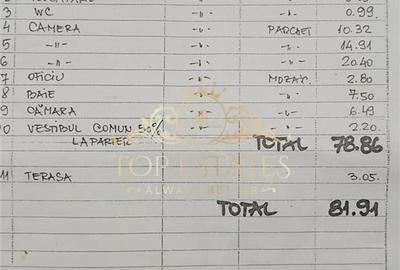 3 WC -"- -"- 0.99
4 CAMERA -"- PARCHET 10.32
5 -"- -"- -"- 14.91
6 -"- -"- -"- 20.40
7 OFICIU -"- MOZAIC 2.80
8 BAIE -"- -"- 7.50
9 CĂMARA -"- -"- 6.49
0 VESTIBUL COMUN 50% -"- -"- 2.20
LA PARTER TOTAL 78.86
TOP ESTATES
ALWAYS BETTER
11 TERASA 3.05
TOTAL 81.91